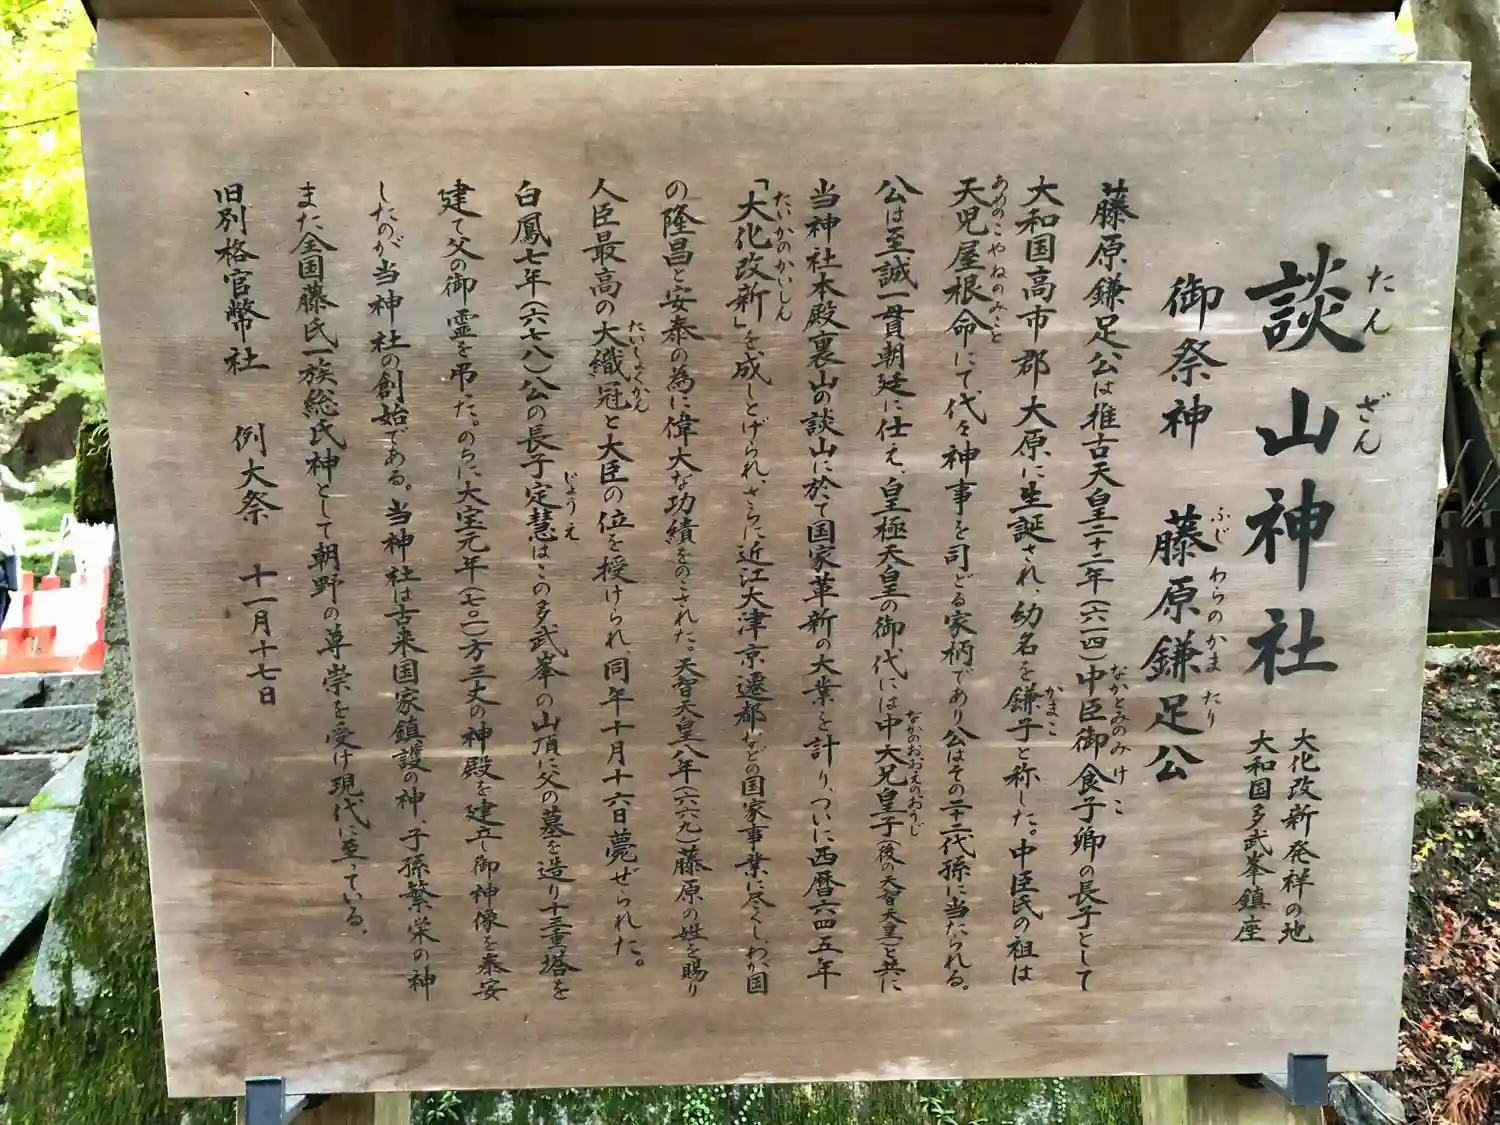 談山神社
たんざん
大化改新発祥の地
大和国多武峯鎮座
御祭神 藤原鎌足公
ふじわらのかまたり
藤原鎌足公は推古天皇二十二年(六一四)中臣御食子卿の長子として
なかとみのみけこ
大和国高市郡大原に生誕され、幼名を鎌子と称した。中臣氏の祖は
かまこ
天児屋根命にて代々神事を司どる家柄であり公はその二十二代孫に当たられる。
あめのこやねのみこと
公は至誠一貫朝廷に仕え、皇極天皇の御代には中大兄皇子(後の天智天皇)と共に
なかのおおえのおうじ
当神社本殿裏山の談山に於て国家革新の大業を計り、ついに西暦六四五年
「大化改新」を成しとげられ、さらに近江大津京遷都などの国家事業に尽くし、わが国
たいかのかいしん
の隆昌と安泰の為に偉大な功績をのこされた。天智天皇八年(六六九)藤原の姓を賜り
人臣最高の大織冠と大臣の位を授けられ、同年十月十六日薨ぜられた。
たいしょくかん
白鳳七年(六七八)公の長子定慧はこの多武峯の山頂に父の墓を造り十三重塔を
じょうえ
建て父の御霊を弔った。のちに大宝元年(七〇一)方三丈の神殿を建立し御神像を奉安
したのが当神社の創始である。当神社は古来国家鎮護の神、子孫繁栄の神
また全国藤氏一族総氏神として朝野の尊崇を受け現代に至っている。
旧別格官幣社 例大祭 十一月十七日